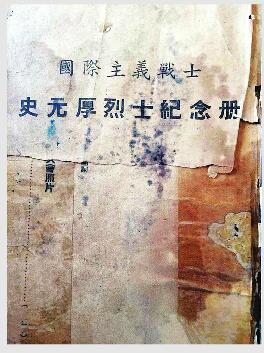 國際主義戰士
史元厚烈士紀念册
照片